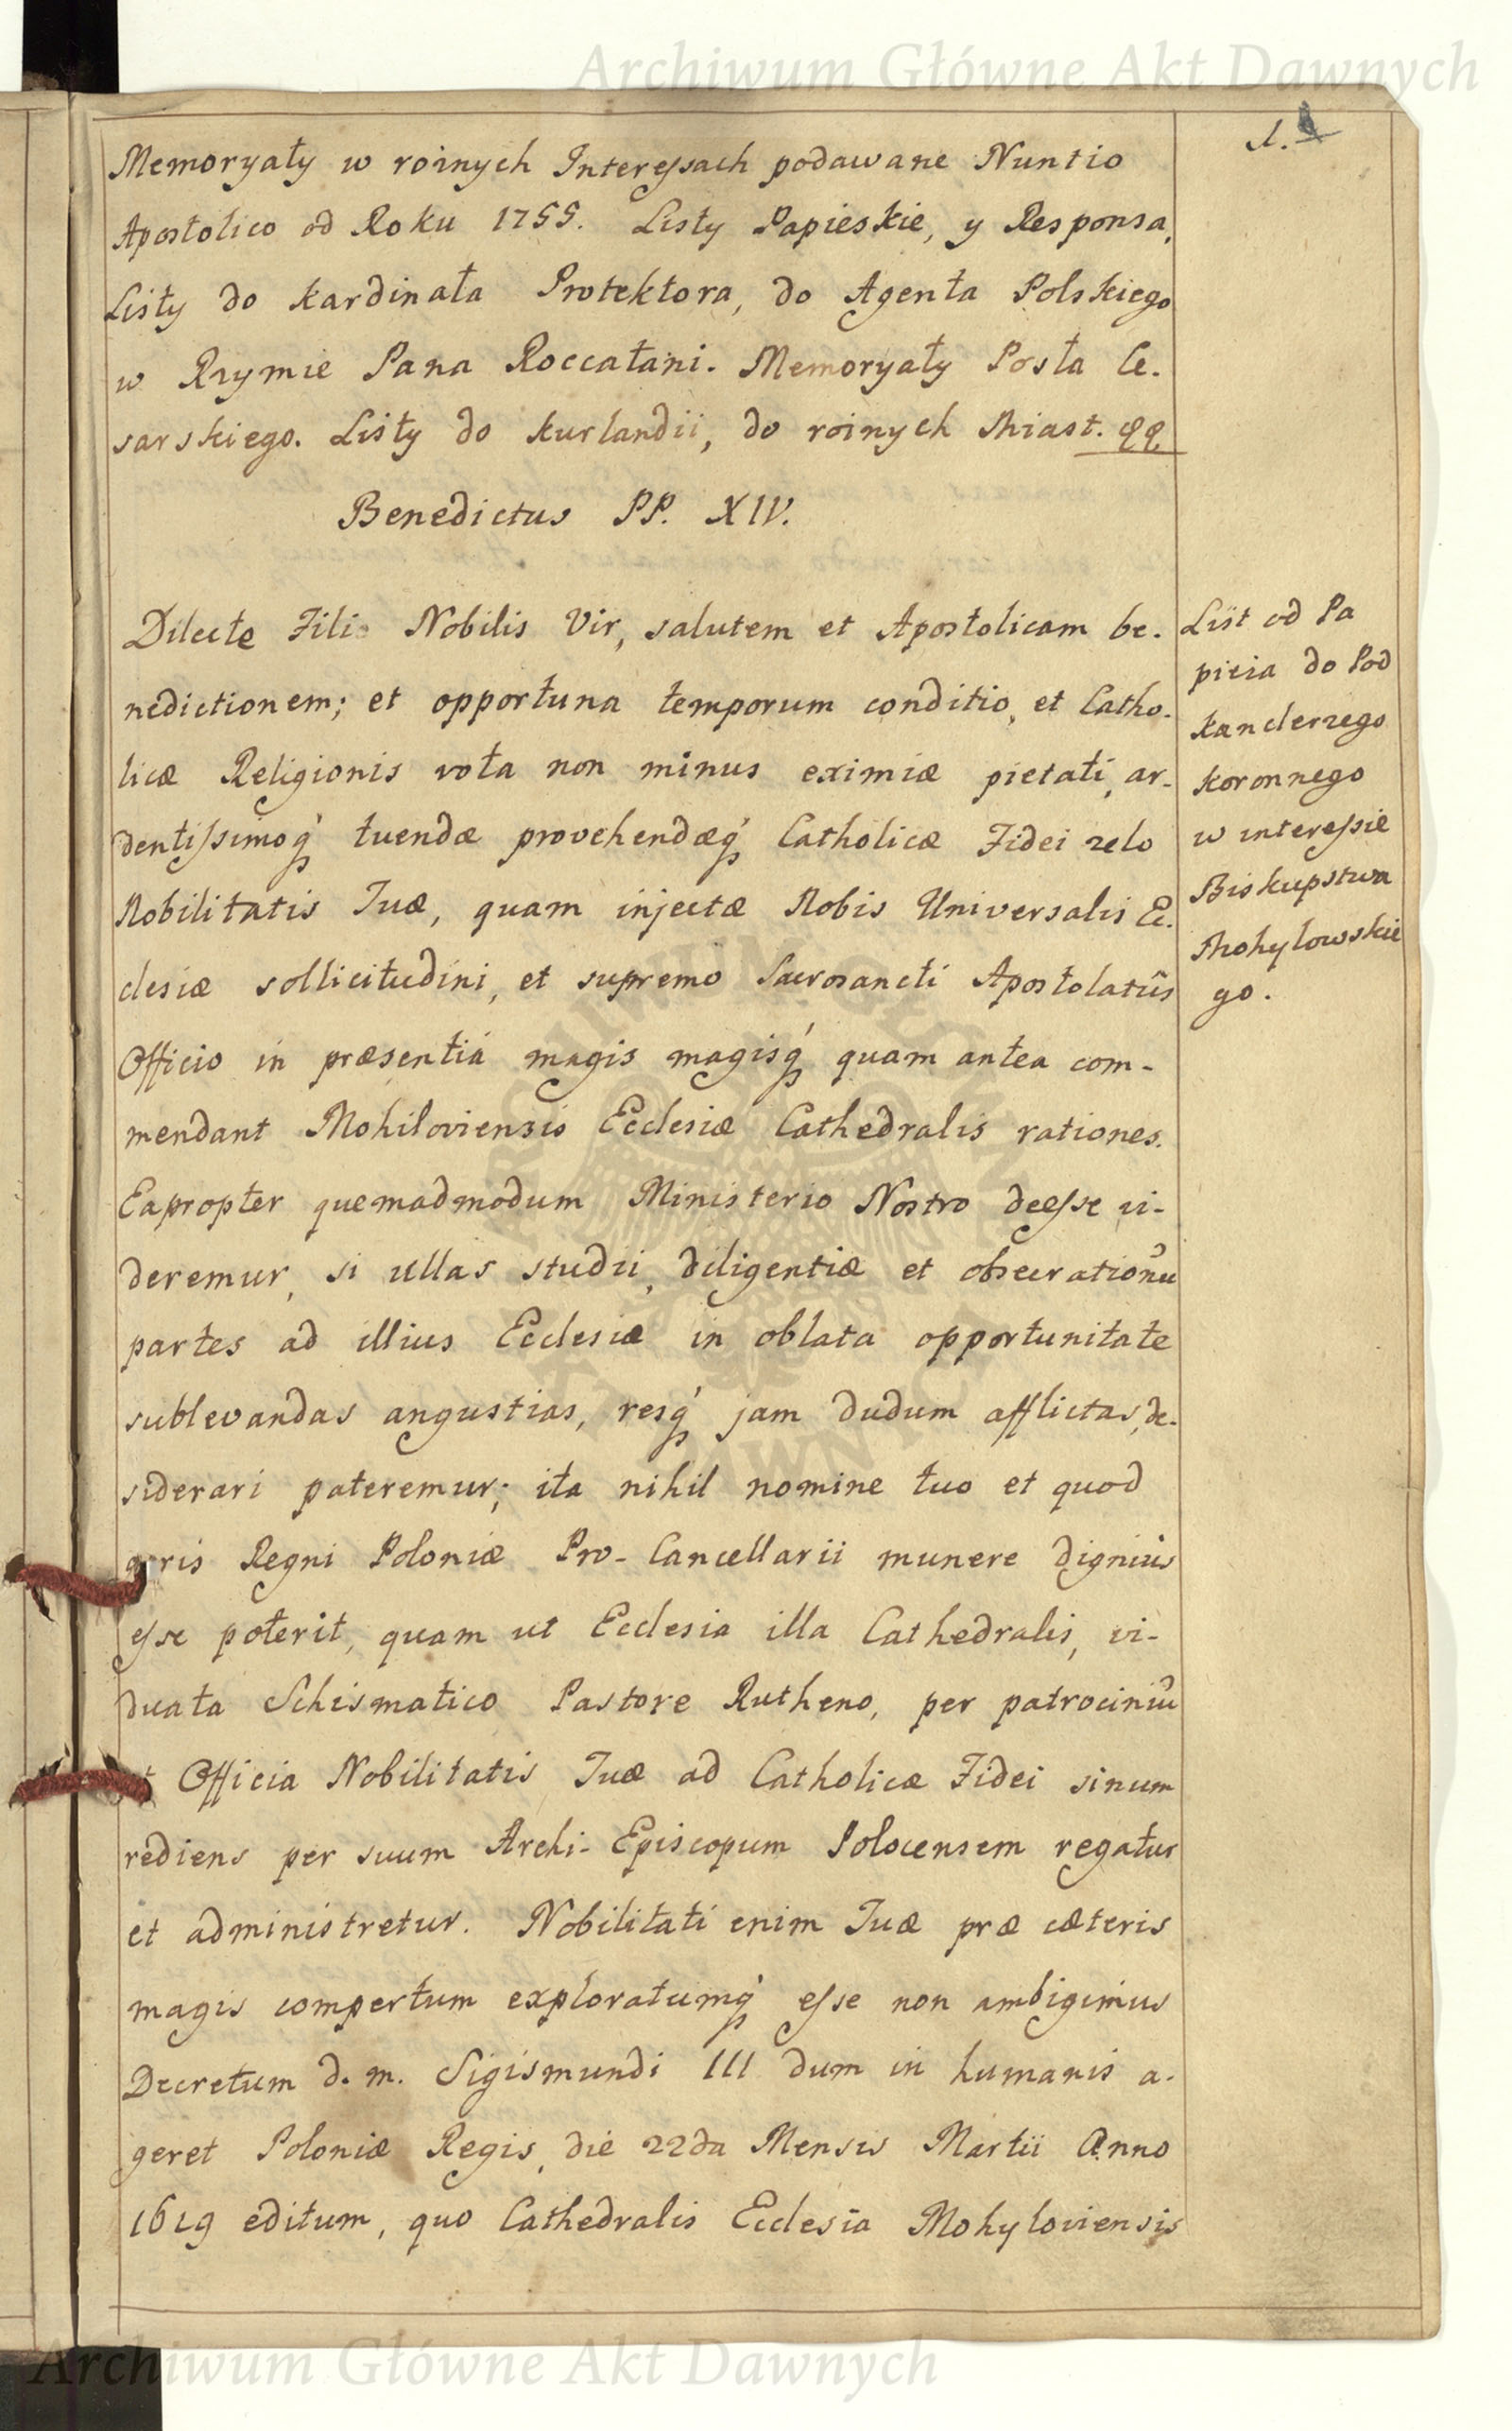 Archiwum Główne Akt Dawnych
1.
Memoryały w roinych Interessach podawane Nuntio
Apostolico od Roku 1755. Listy Papieskie, y Responsa,
Listy do Kardinała Protektora, do Agenta Polskiego
w Rzymie Pana Roccatani. Memoryały Posła Ce-
sarskiego. Listy do Kurlandii, do roinych Miast.
Benedictus PP. XIV.
Dilecte Fili Nobilis Vir, salutem et Apostolicam be-
nedictionem; et opportuna temporum conditio, et Catho-
licæ Religionis vota non minus eximiæ pietati, ar-
dentissimoq́ tuendæ provehendæq́ Catholicæ Fidei zelo
Nobilitatis Tuæ, quam injectæ Nobis Universalis Ec-
clesiæ sollicitudini, et supremo Sacrosancti Apostolatûs
Officio in præsentiá magis magisq́ quam antea com-
mendant Mohiloviensis Ecclesiæ Cathedralis rationes.
Eapropter quemadmodum Ministerio Nostro deesse vi-
deremur, si ullas studii, diligentiæ et obsecrationũ
partes ad illius Ecclesiæ in oblata opportunitate
sublevandas angustias, resq́ jam dudum afflictas, de-
siderari pateremur; ita nihil nomine tuo et quod
geris Regni Poloniæ Pro-Cancellarii munere dignius
esse poterit, quam ut Ecclesia illa Cathedralis, vi-
duata Schismatico Pastore Rutheno, per patrociniũ
et Officia Nobilitatis Tuæ ad Catholicæ Fidei sinum
rediens per suum Archi-Episcopum Polocensem regatur
et administretur. Nobilitati enim Tuæ præ cæteris
magis compertum exploratumq́ esse non ambigimus
Decretum d. m. Sigismundi III dum in humanis a-
geret Poloniæ Regis, die 22da Mensis Martii Anno
1619 editum, quo Cathedralis Ecclesia Mohyloviensis
List od Pa
pieia do Pod
kanclerzego
koronnego
w interessie
Biskupstwa
Mohylowskie
go.
Archiwum Główne Akt Dawnych